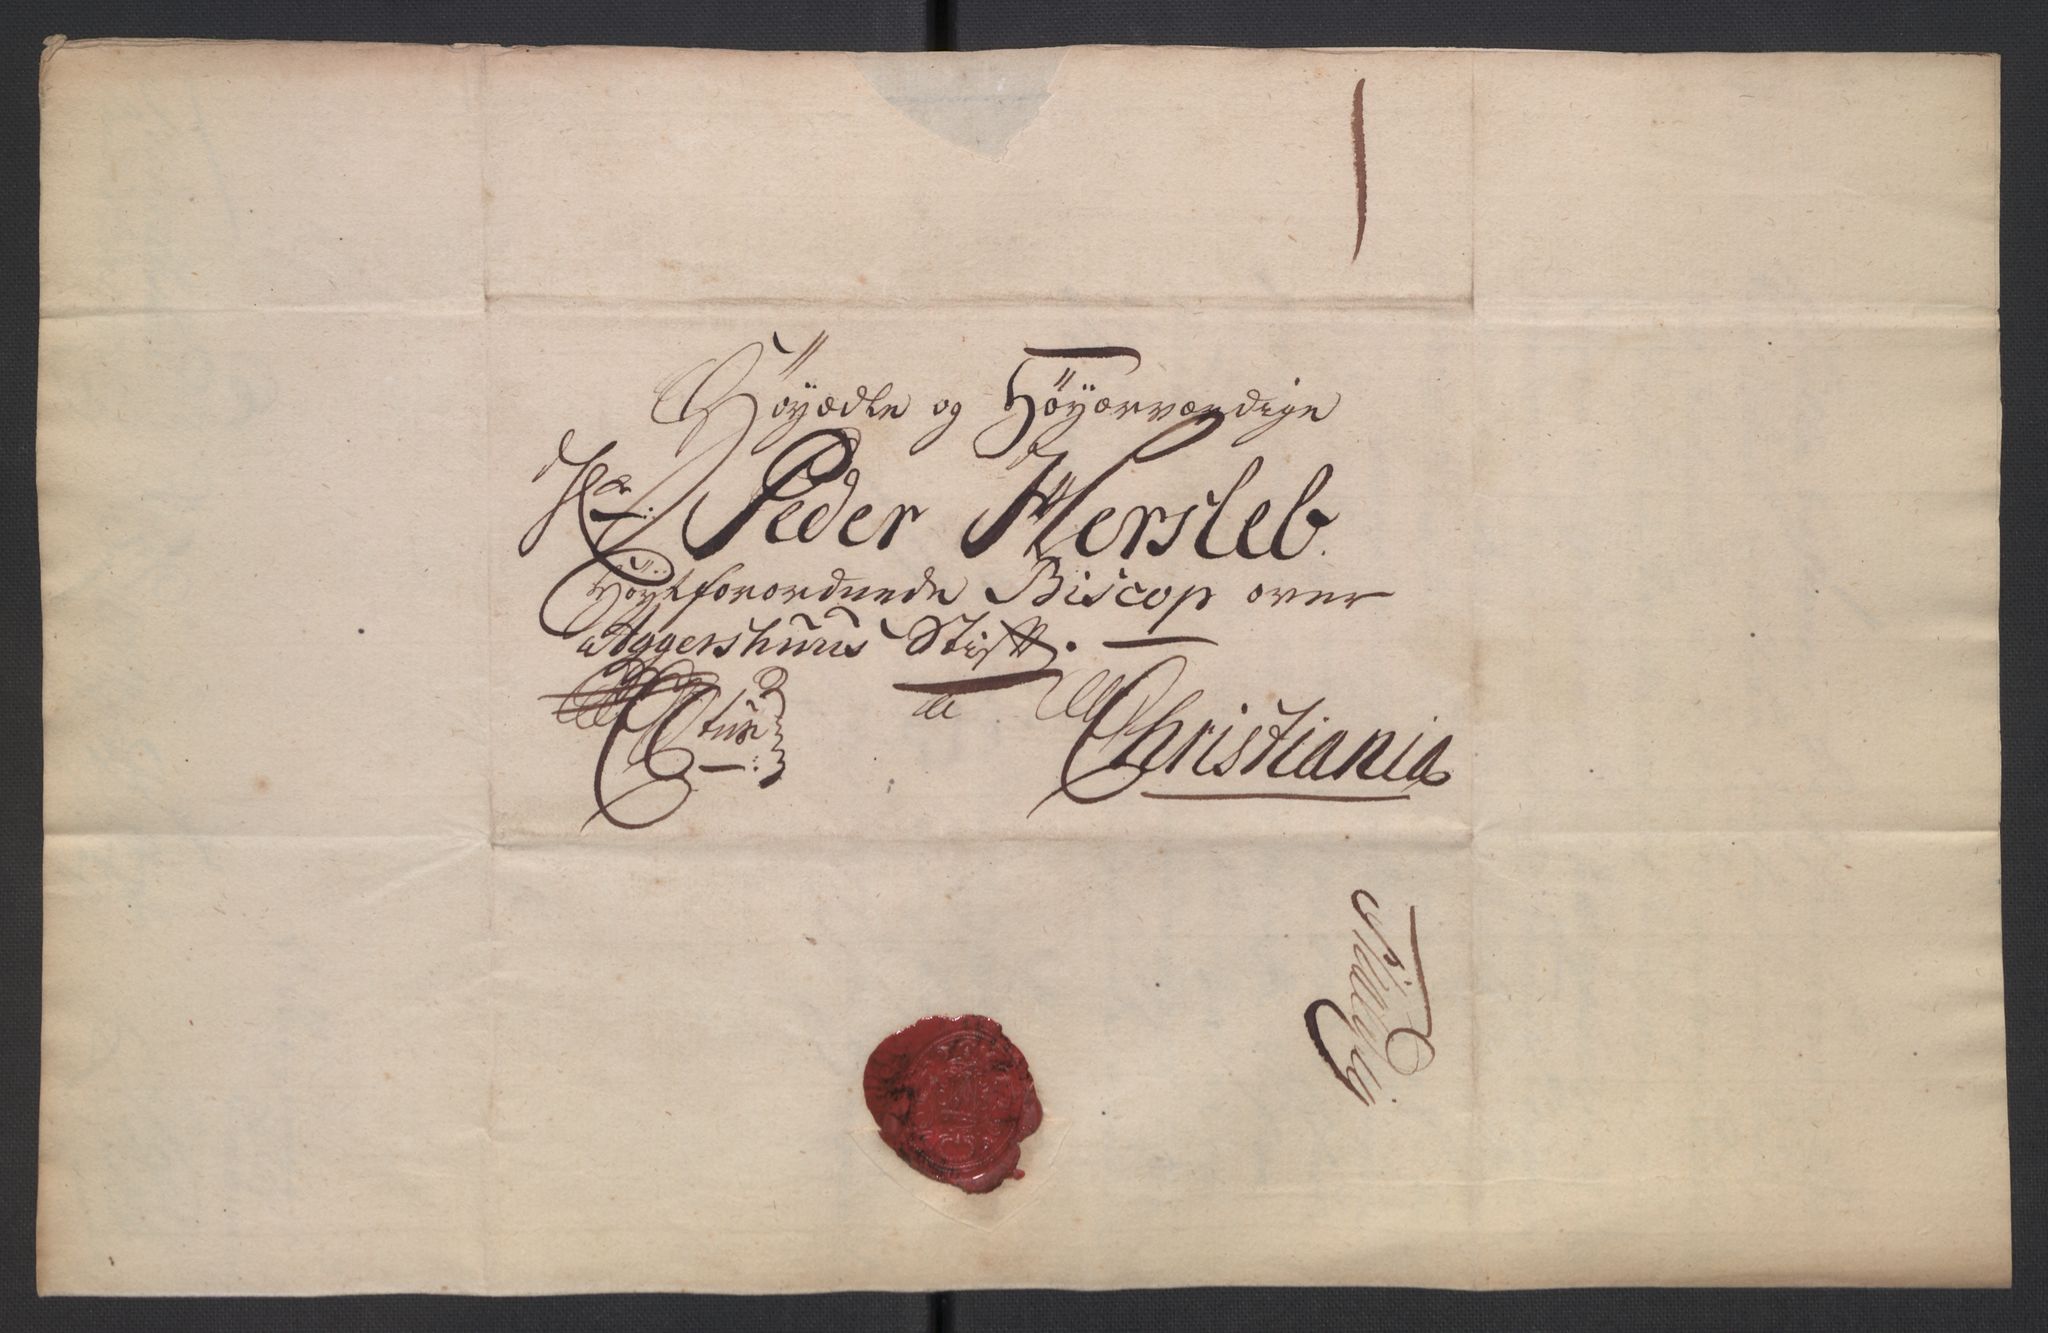 Höyædle og Höyærværdige
Hr. Peder Hersleb.
Höytforordnede Biscop over
Aggershuus Stift.
a Christiania